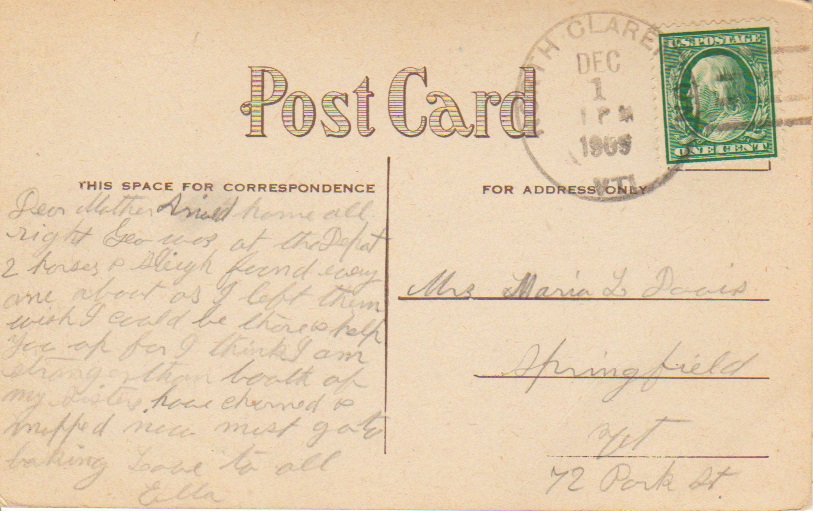 Post Card
NORTH CLAREN
DEC
1
1 PM
1909
VT.
U.S. POSTAGE
ONE CENT
THIS SPACE FOR CORRESPONDENCE
FOR ADDRESS ONLY
Dear Mother home all
right Geo was at the Depot
2 horses & Sleigh found every
one about as I left them
wish I could be there & help
you up for I think I am
stronger than boath of
my sisters have churned &
mopped now must go to
baking Love to all
Ella
Mrs Maria L Davis
Springfield
Vt
72 Park St.